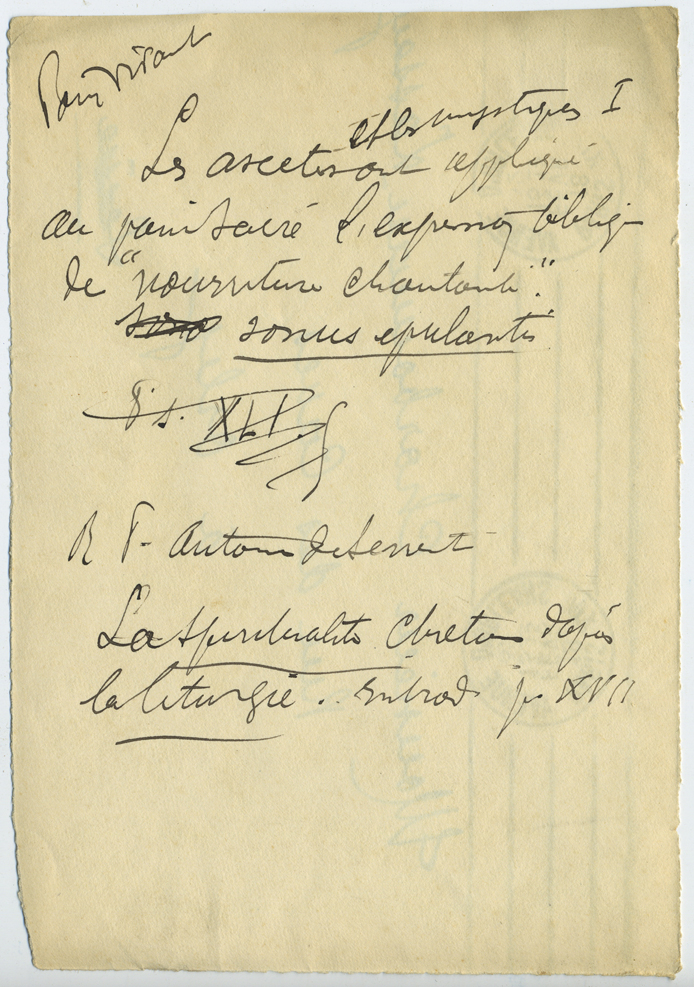 Pain vivant
et les mystiques I
Les ascètes ont appliqué
au pain sacré l'expression biblique
de "nourriture chantante".
sonus epulantis
Ps. XLI. 5
R P. Antoine de Serent
La spiritualité chrétienne d'après
la liturgie. Introd p. XVII